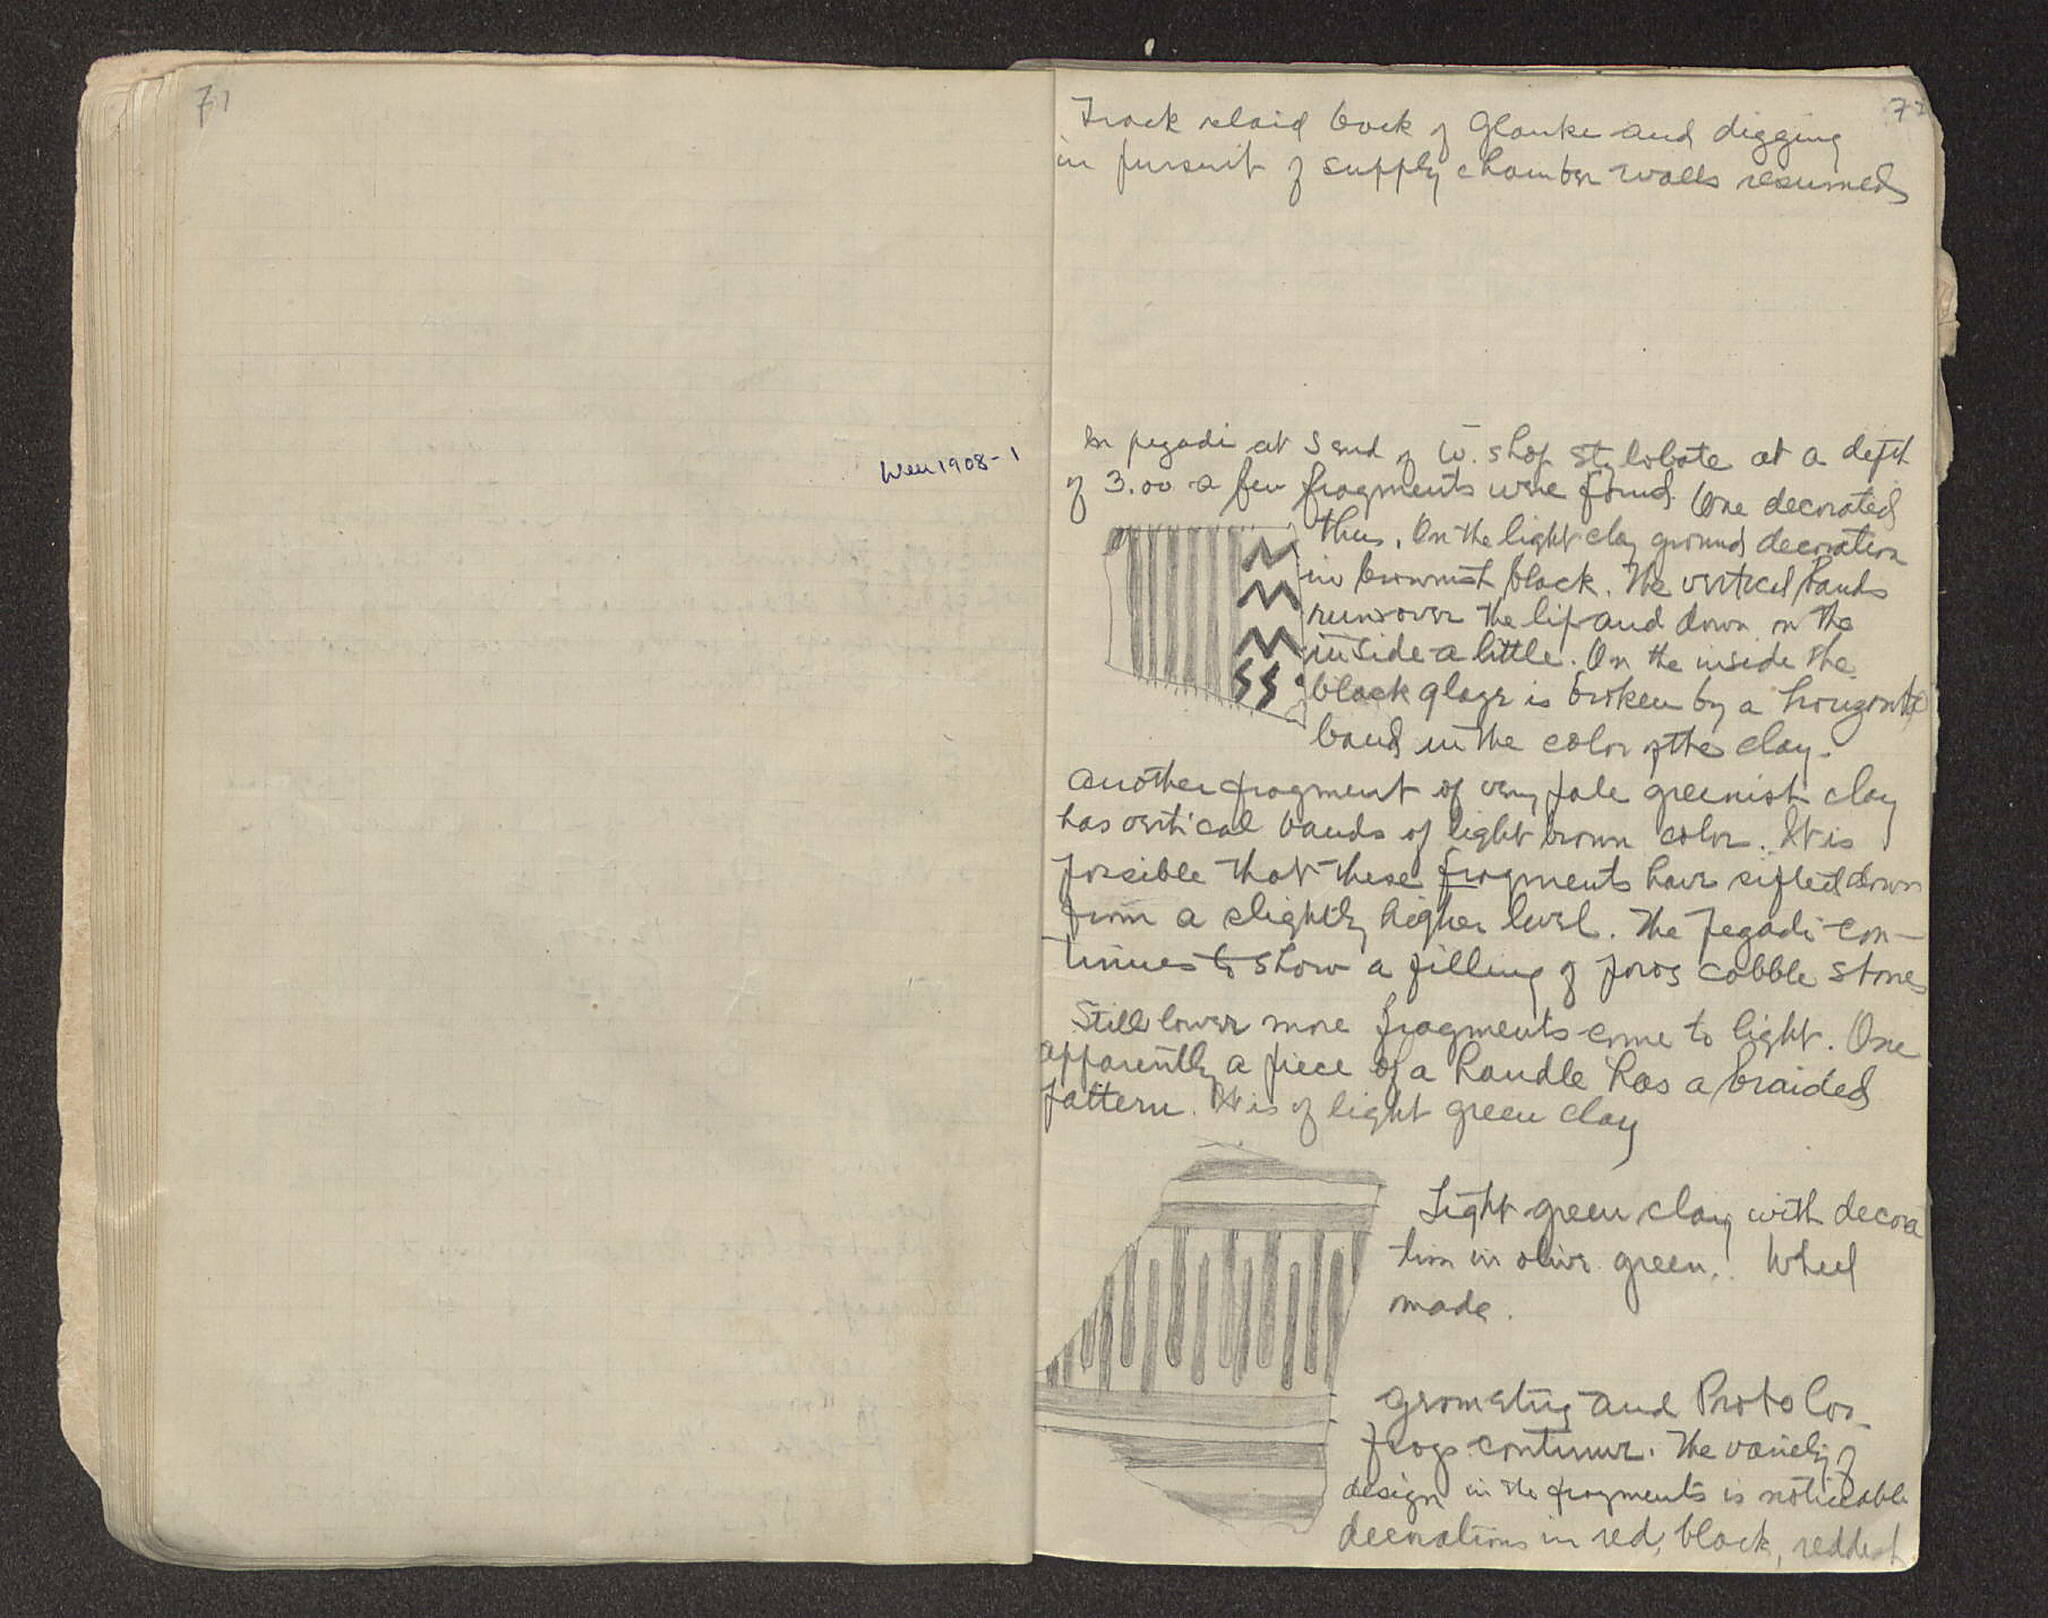 71
Well 1908-1
72
Track relaid back of Glauke and digging
in pursuit of supply chamber walls resumed
In pegadi at S end of W. shop stylobate at a depth
of 3.00 a few fragments were found. One decorated
thus. On the light clay ground decoration
in brownish black. The vertical bands
run over the lip and down on the
inside a little. On the inside the
black glaze is broken by a horizontal
band in the color of the clay.
Another fragment of very pale greenish clay
has vertical bands of light brown color. It is
possible that these fragments have sifted down
from a slightly higher level. The pegadi con-
tinues to show a filling of poros cobble stones
Still lower more fragments come to light. One
apparently a piece of a handle has a braided
pattern. It is of light green clay
Light green clay with decora
tion in olive green. Wheel
made.
Geometric and Proto Cor
frags continue. The variety of
design in the fragments is noticeable
decorations in red, black, reddish